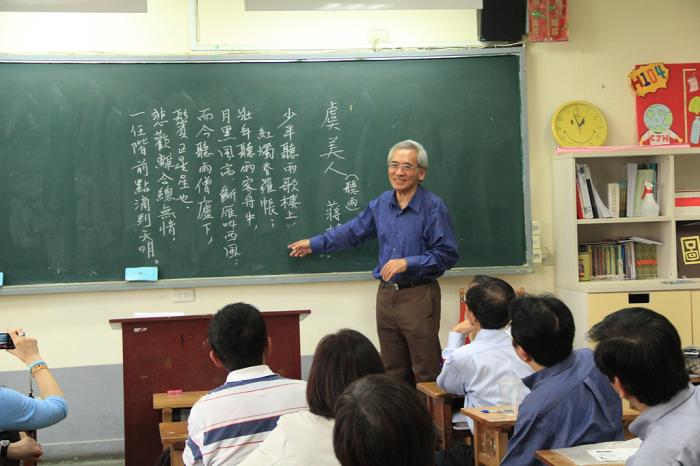 虞美人（聽雨） 蔣
少年聽雨歌樓上，
紅燭昏羅帳；
壯年聽雨客舟中，
月黑風高，斷雁叫西風。
而今聽雨僧廬下，
鬢已星星也。
悲歡離合總無情，
一任階前點滴到天明。
H104
CJH